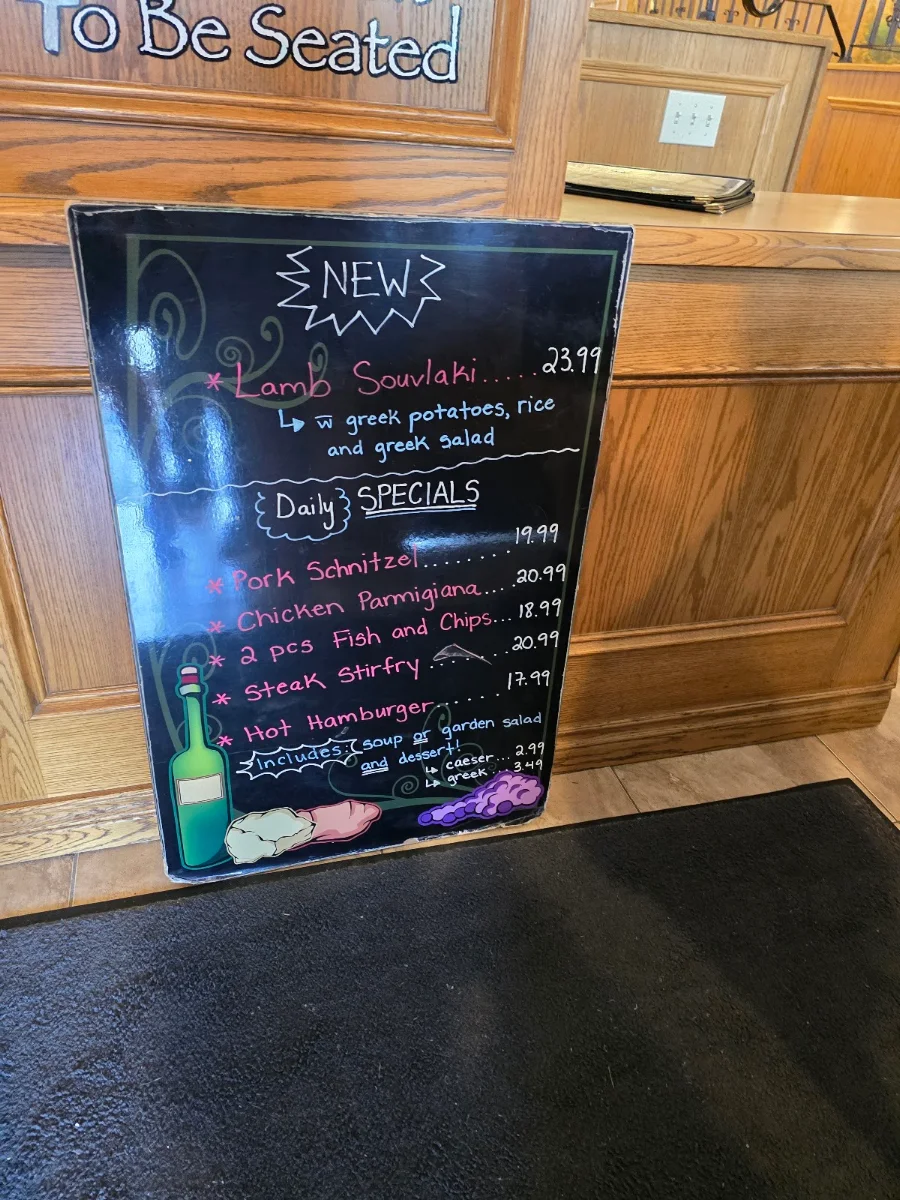 To Be Seated
NEW
* Lamb Souvlaki..... 23.99
↳ w̅ greek potatoes, rice
and greek salad
Daily SPECIALS
* Pork Schnitzel........ 19.99
* Chicken Parmigiana.... 20.99
* 2 pcs Fish and Chips... 18.99
* Steak Stirfry ....... 20.99
* Hot Hamburger....... 17.99
Includes: soup or garden salad
and dessert!
↳ caeser... 2.99
↳ greek... 3.49